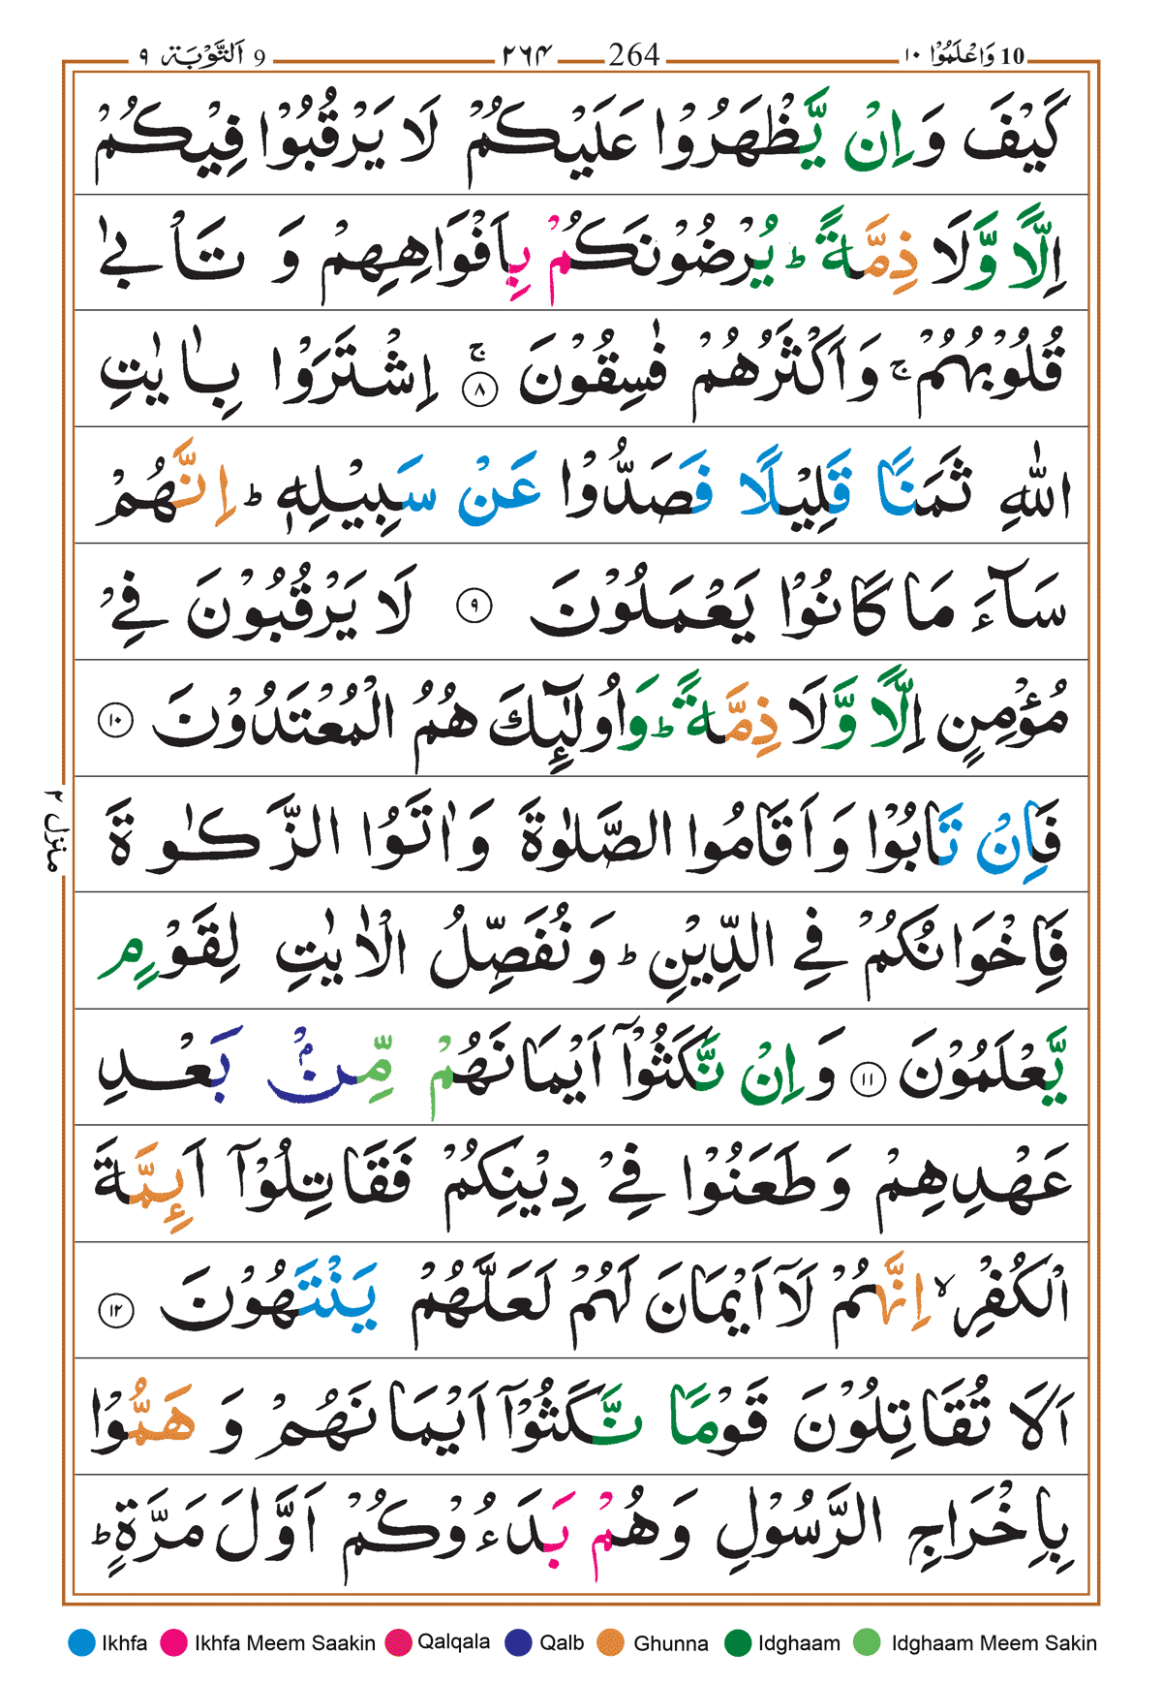 10 وَاعْلَمُوْٓا ۱۰ 264 ۲۶۴ 9 اَلتَّوْبَة ۹
كَيْفَ وَاِنْ يَّظْهَرُوْا عَلَيْكُمْ لَا يَرْقُبُوْا فِيْكُمْ
اِلًّا وَّلَا ذِمَّةً ؕ يُرْضُوْنَكُمْ بِاَفْوَاهِهِمْ وَ تَاْبٰى
قُلُوْبُهُمْ ۚ وَاَكْثَرُهُمْ فٰسِقُوْنَ ۚ ۸ اِشْتَرَوْا بِاٰيٰتِ
اللّٰهِ ثَمَنًا قَلِيْلًا فَصَدُّوْا عَنْ سَبِيْلِهٖ ؕ اِنَّهُمْ
سَآءَ مَا كَانُوْا يَعْمَلُوْنَ ۹ لَا يَرْقُبُوْنَ فِىْ
مُؤْمِنٍ اِلًّا وَّلَا ذِمَّةً ؕ وَاُولٰٓئِكَ هُمُ الْمُعْتَدُوْنَ ۱۰
فَاِنْ تَابُوْا وَاَقَامُوا الصَّلٰوةَ وَاٰتَوُا الزَّكٰوةَ
فَاِخْوَانُكُمْ فِى الدِّيْنِ ؕ وَنُفَصِّلُ الْاٰيٰتِ لِقَوْمٍ
يَّعْلَمُوْنَ ۱۱ وَاِنْ نَّكَثُوْۤا اَيْمَانَهُمْ مِّنْۢ بَعْدِ
عَهْدِهِمْ وَطَعَنُوْا فِىْ دِيْنِكُمْ فَقَاتِلُوْۤا اَئِمَّةَ
الْكُفْرِ ۙ اِنَّهُمْ لَاۤ اَيْمَانَ لَهُمْ لَعَلَّهُمْ يَنْتَهُوْنَ ۱۲
اَلَا تُقَاتِلُوْنَ قَوْمًا نَّكَثُوْۤا اَيْمَانَهُمْ وَ هَمُّوْا
بِاِخْرَاجِ الرَّسُوْلِ وَهُمْ بَدَءُوْكُمْ اَوَّلَ مَرَّةٍ ؕ
منزل ۲
Ikhfa Ikhfa Meem Saakin Qalqala Qalb Ghunna Idghaam Idghaam Meem Sakin